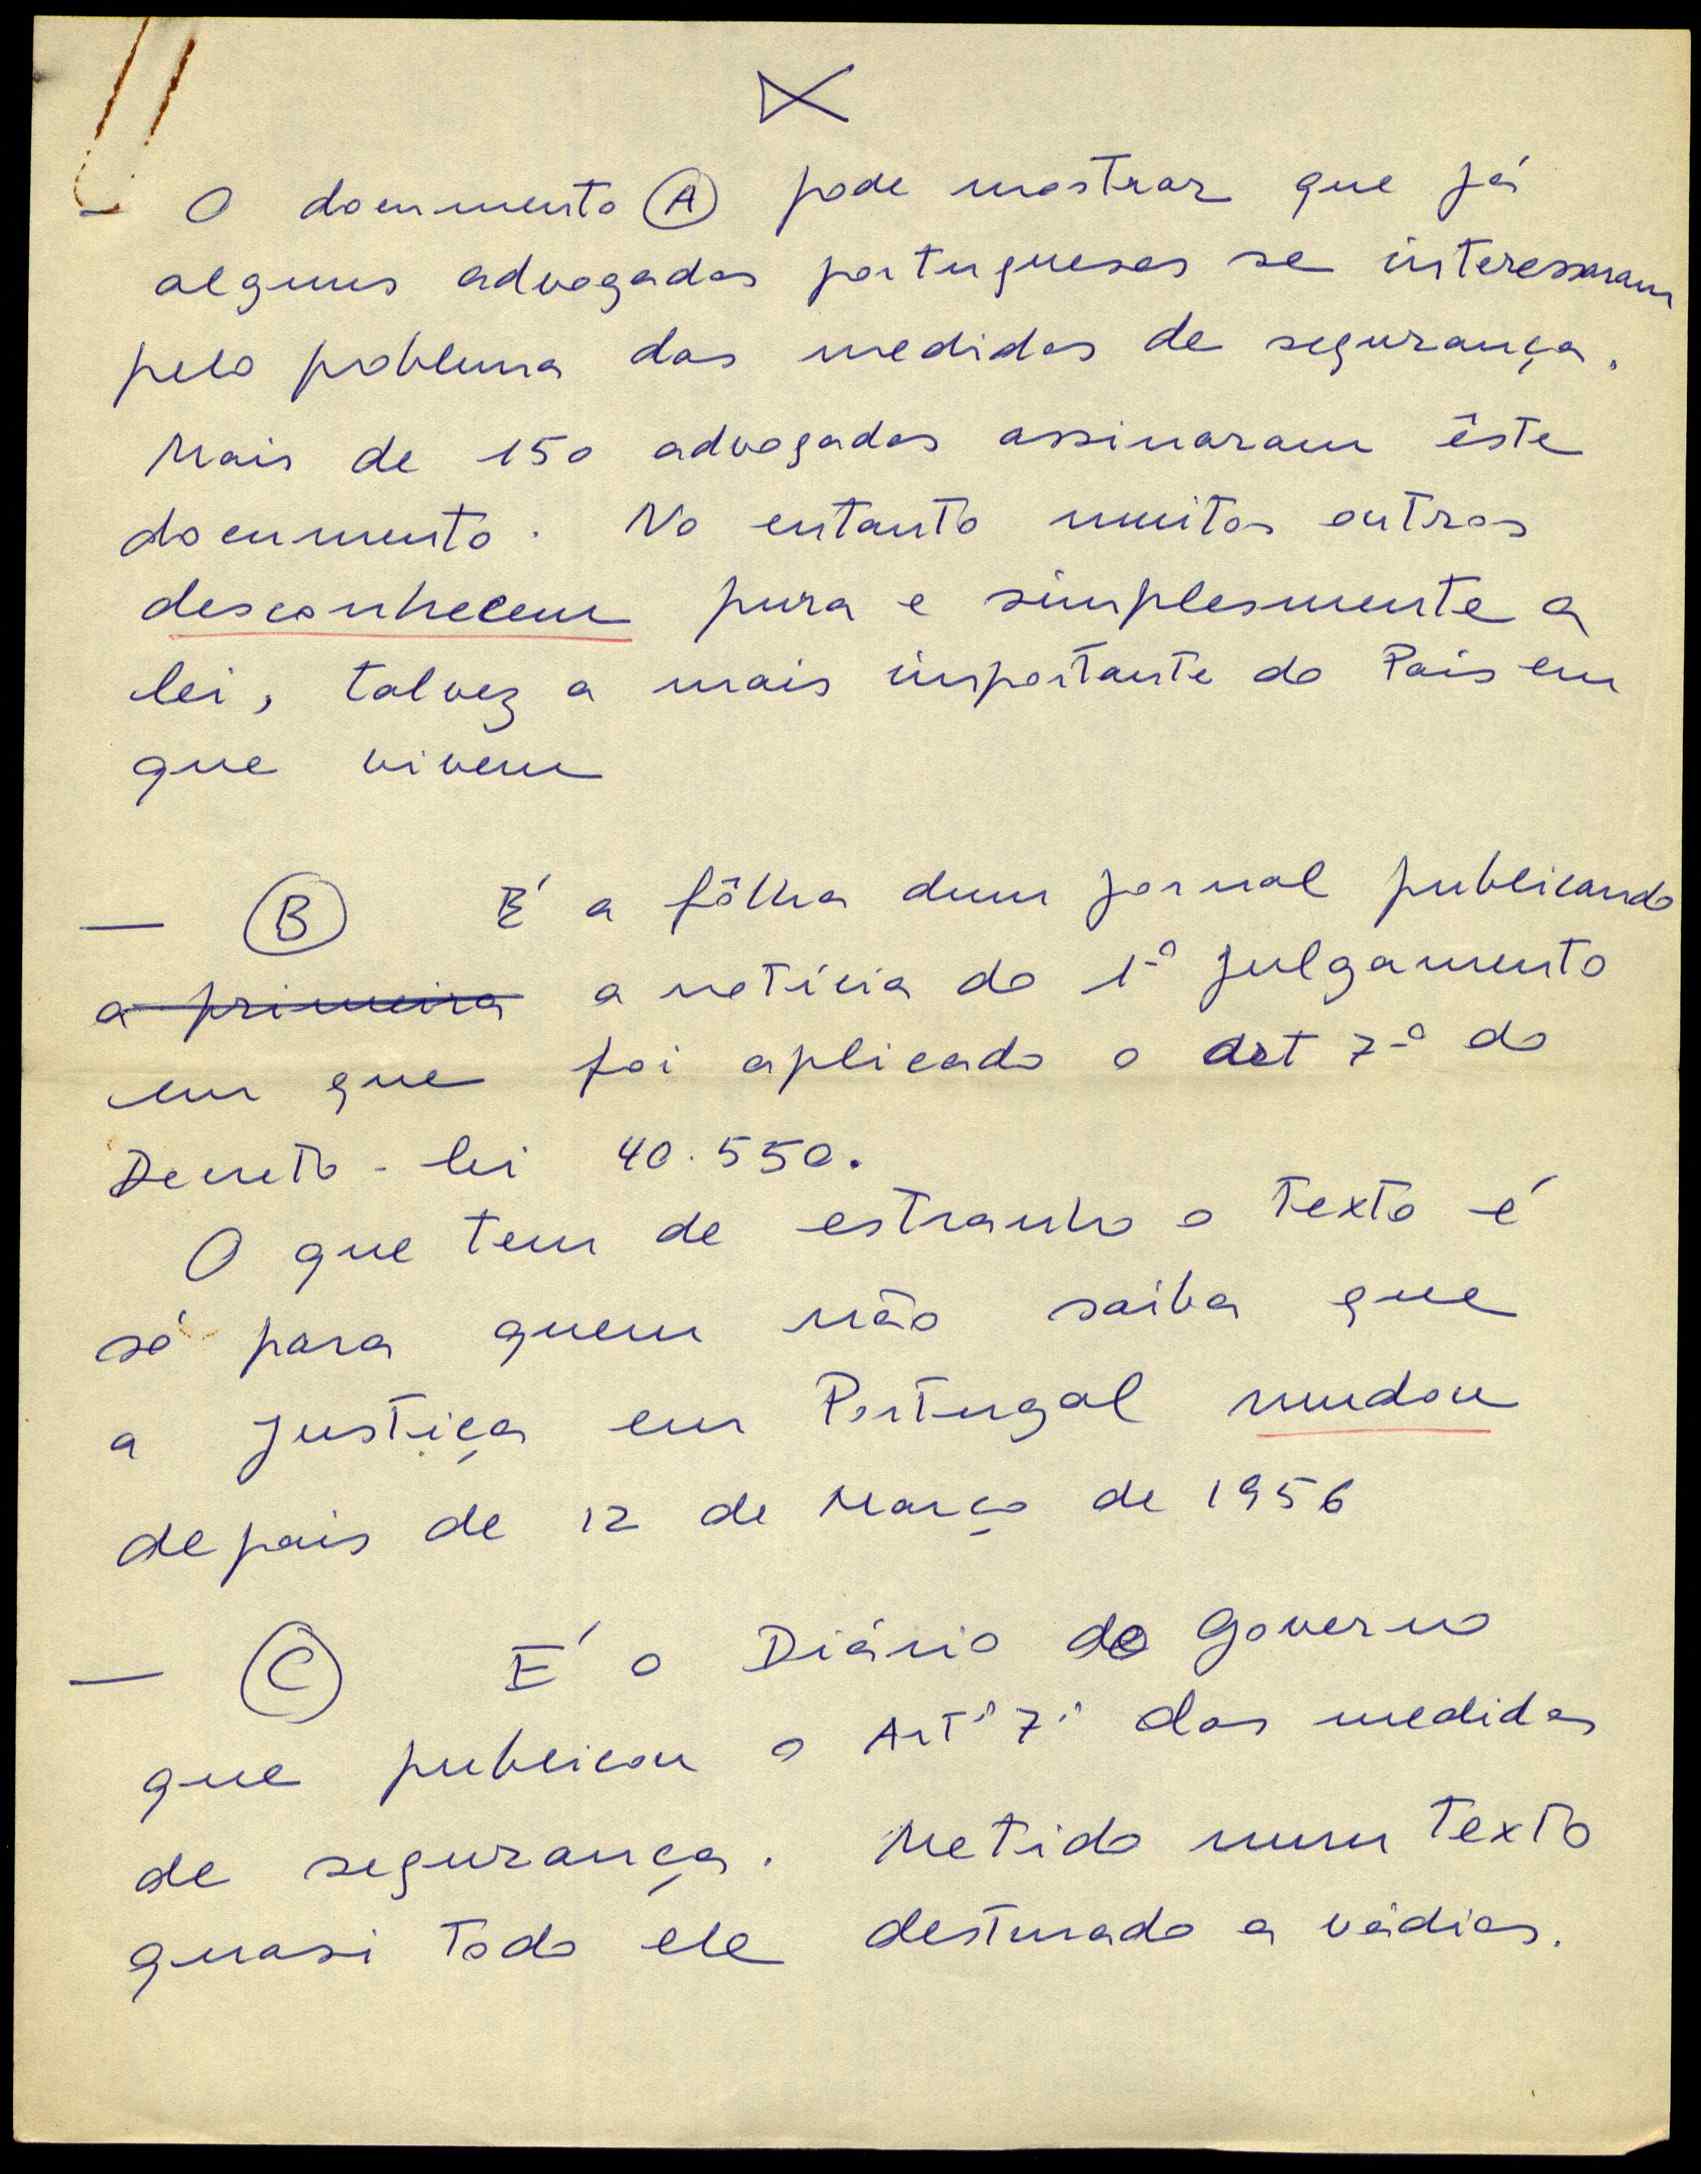 - O documento (A) pode mostrar que já
alguns advogados portugueses se interessaram
pelo problema das medidas de segurança.
Mais de 150 advogados assinaram êste
documento. No entanto muitos outros
desconhecem pura e simplesmente a
lei, talvez a mais importante do Pais em
que vivem
— (B) É a fôlha dum jornal publicando
a primeira a notícia do 1º julgamento
em que foi aplicado o art 7º do
Decreto-lei 40.550.
O que tem de estranho o texto é
só para quem não saiba que
a justiça em Portugal mudou
depois de 12 de Março de 1956
— (C) É o Diário do Governo
que publicou o Artº 7º das medidas
de segurança. Metido num texto
quasi todo ele destinado a vádios.